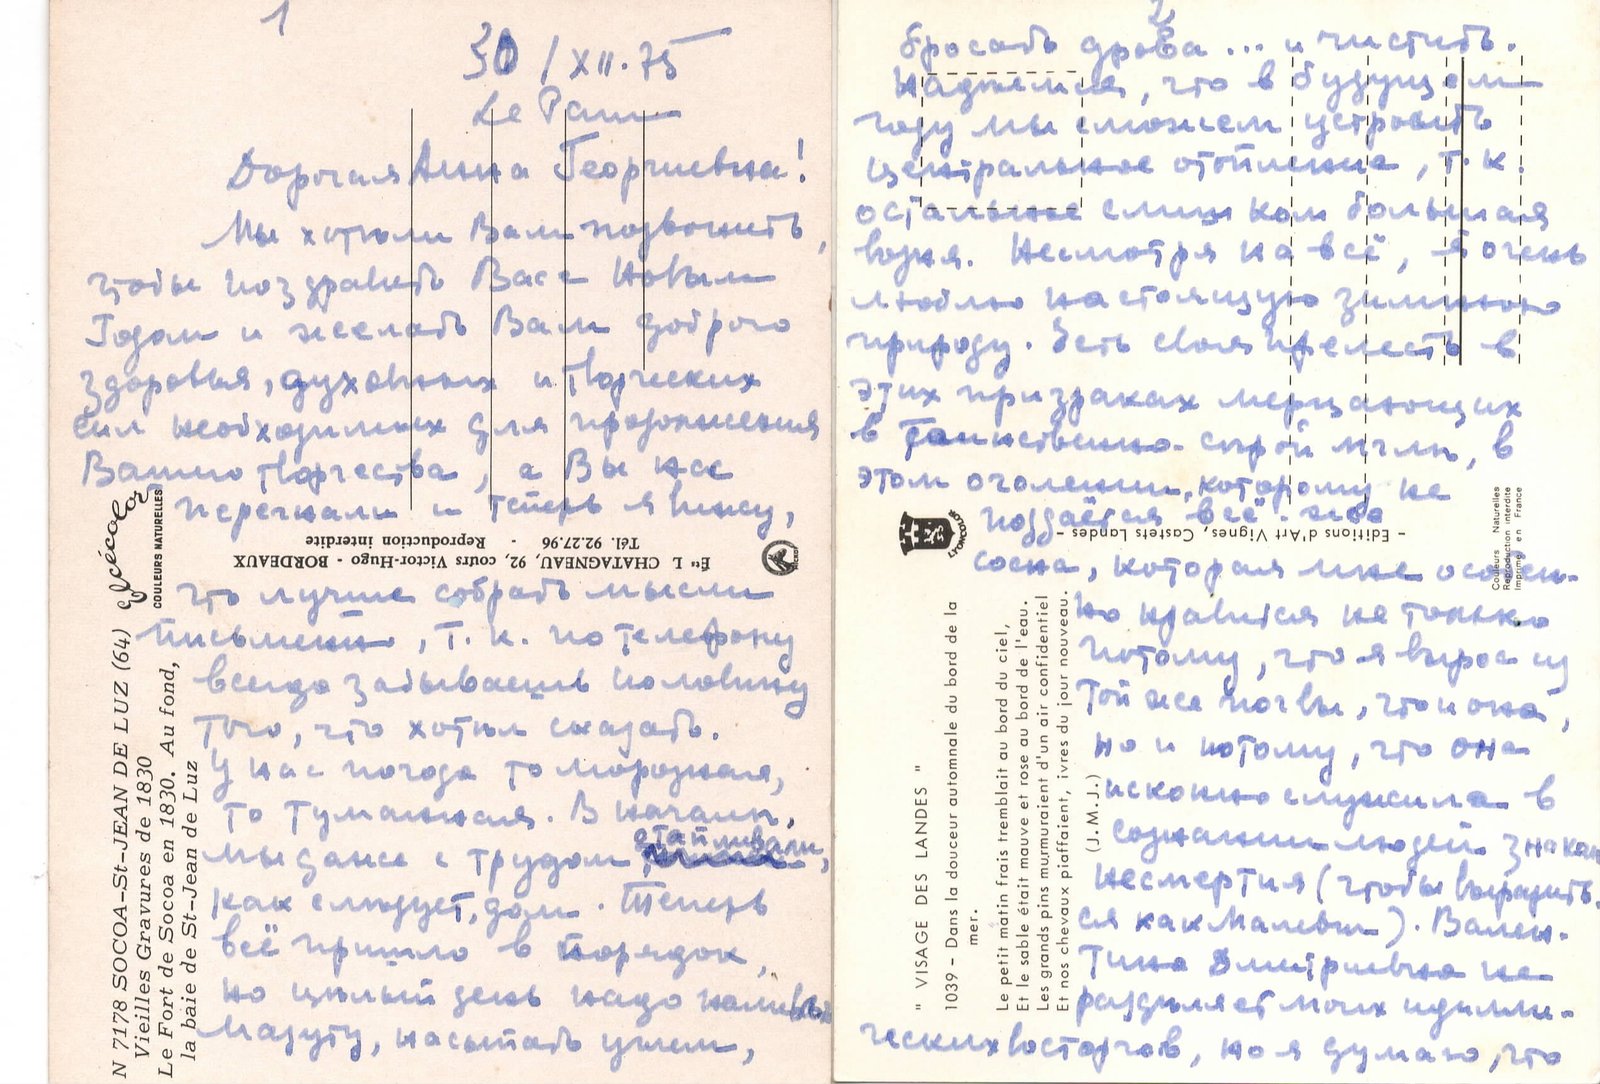 1
30/XII.75
Le Pam
Дорогая Анна Георгиевна!
Мы хотѣли Вам позвонить,
чтобы поздравить Вас с Новым
Годом и желать Вам доброго
здоровья, духовных и творческих
сил необходимых для продолжения
Вашего творчества, а Вы нас
перегнали и теперь я пишу,
что лучше собрать мысли
письменно, т.к. по телефону
всегда забываешь половину
того, что хотѣл сказать.
У нас погода то морозная,
то туманная. В началѣ,
мы даже с трудом отапливали,
как слѣдует, дом. Теперь
всё пришло в порядок,
но цѣлый день надо наливать
мазуту, насыпать углем,
N 7178 SOCOA-St-JEAN DE LUZ (64)
Vieilles Gravures de 1830
Le Fort de Socoa en 1830. Au fond,
la baie de St-Jean de Luz
spécolor
COULEURS NATURELLES
Ets L. CHATAGNEAU, 92, cours Victor-Hugo - BORDEAUX
Tél. 92.27.96 - Reproduction interdite
2
бросать дрова ... и чистить.
Надѣемся, что в будущем
году мы сможем устроить
центральное отопление, т.к.
остальное слишком большая
возня. Несмотря на всё, я очень
люблю настоящую зимнюю
природу. Есть своя прелесть в
этих призраках мерцающих
в таинственно-сырой мглѣ, в
этом оголении, которому не
поддаётся всё-либо
сосна, которая мне особен-
но нравится не только
потому, что я вырос из
той же почвы, что и она,
но и потому, что она
исконно служила в
сознании людей знаком
несмертия (чтобы выразить-
ся как Малевич). Вален-
тина Дмитриевна не
раздѣляет моих идилли-
ческих восторгов, но я думаю, что
" VISAGE DES LANDES "
1039 - Dans la douceur automnale du bord de la
mer.
Le petit matin frais tremblait au bord du ciel,
Et le sable était mauve et rose au bord de l'eau.
Les grands pins murmuraient d'un air confidentiel
Et nos chevaux piaffaient, ivres du jour nouveau.
(J.M.J.)
LYONCOLOR
- Editions d'Art Vignes, Castets Landes -
Couleurs Naturelles
Reproduction interdite
Imprimé en France